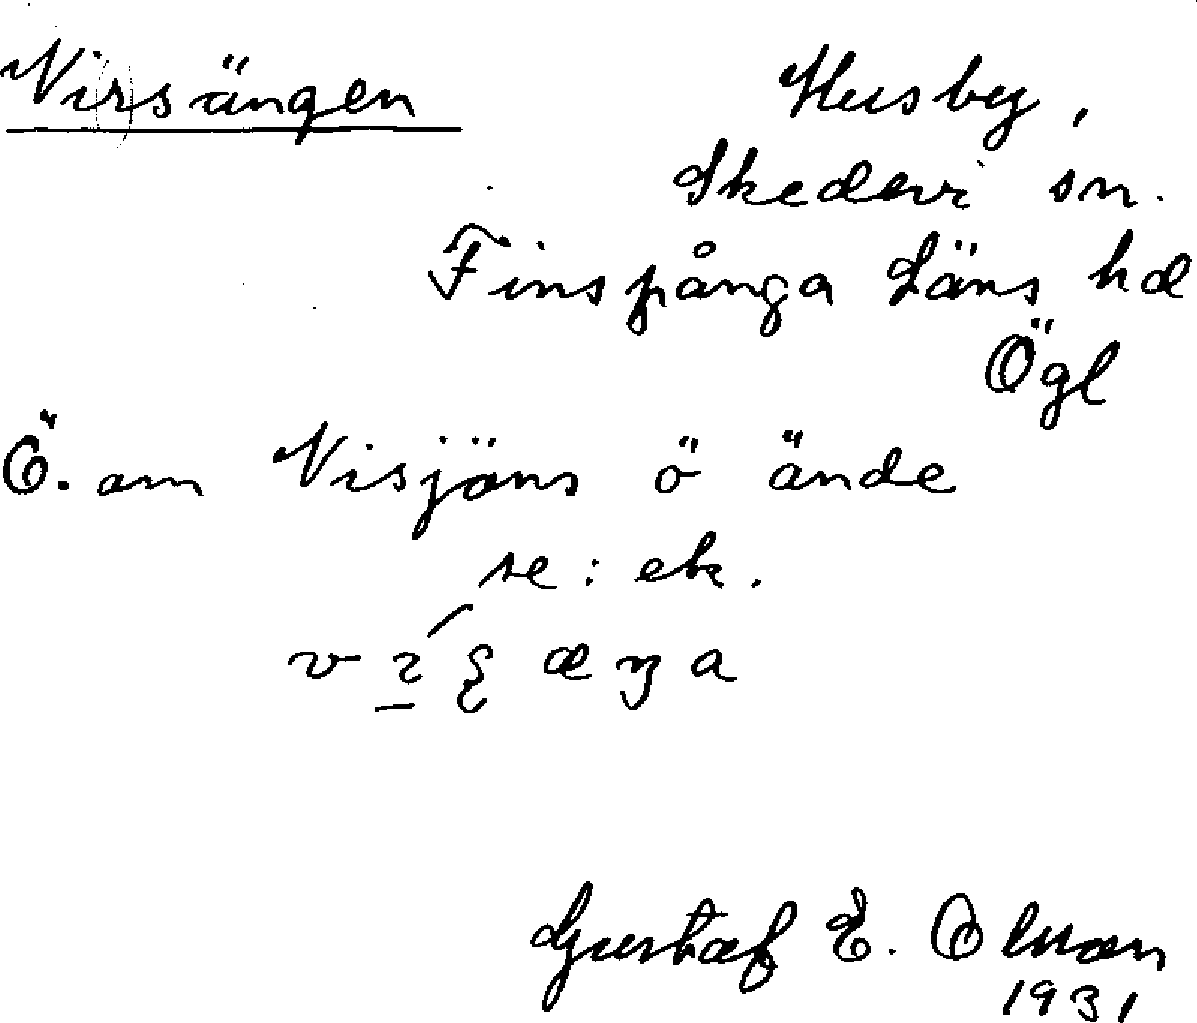 Vi(r)sängen
Husby,
Skedevi sn.
Finspånga Läns hd
Ögl
Ö. om Visjöns ö ände
se: ek.
Gustaf E. Olson
1931